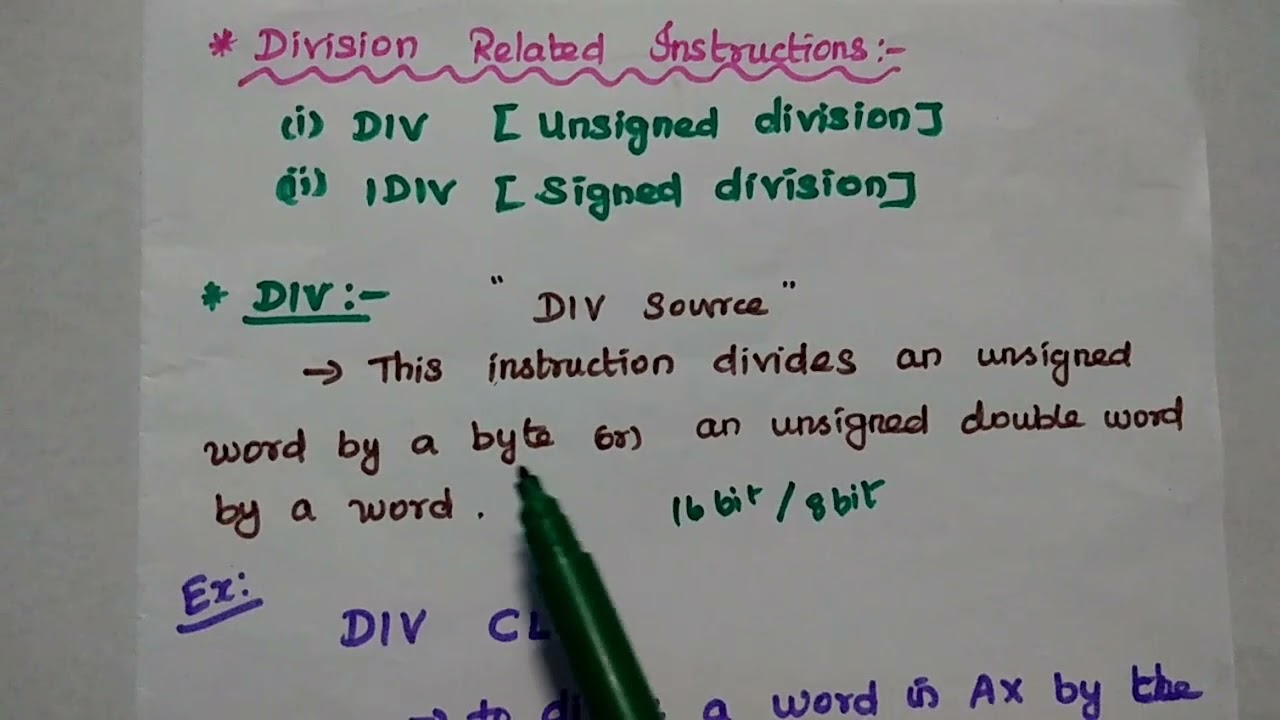 * Division Related Instructions:-
(i) DIV [Unsigned division]
(ii) IDIV [Signed division]
* DIV:- " DIV Source "
→ This instruction divides an unsigned
word by a byte (or) an unsigned double word
by a word. 16 bit / 8 bit
Ex:
DIV CL
→ to a word in AX by the